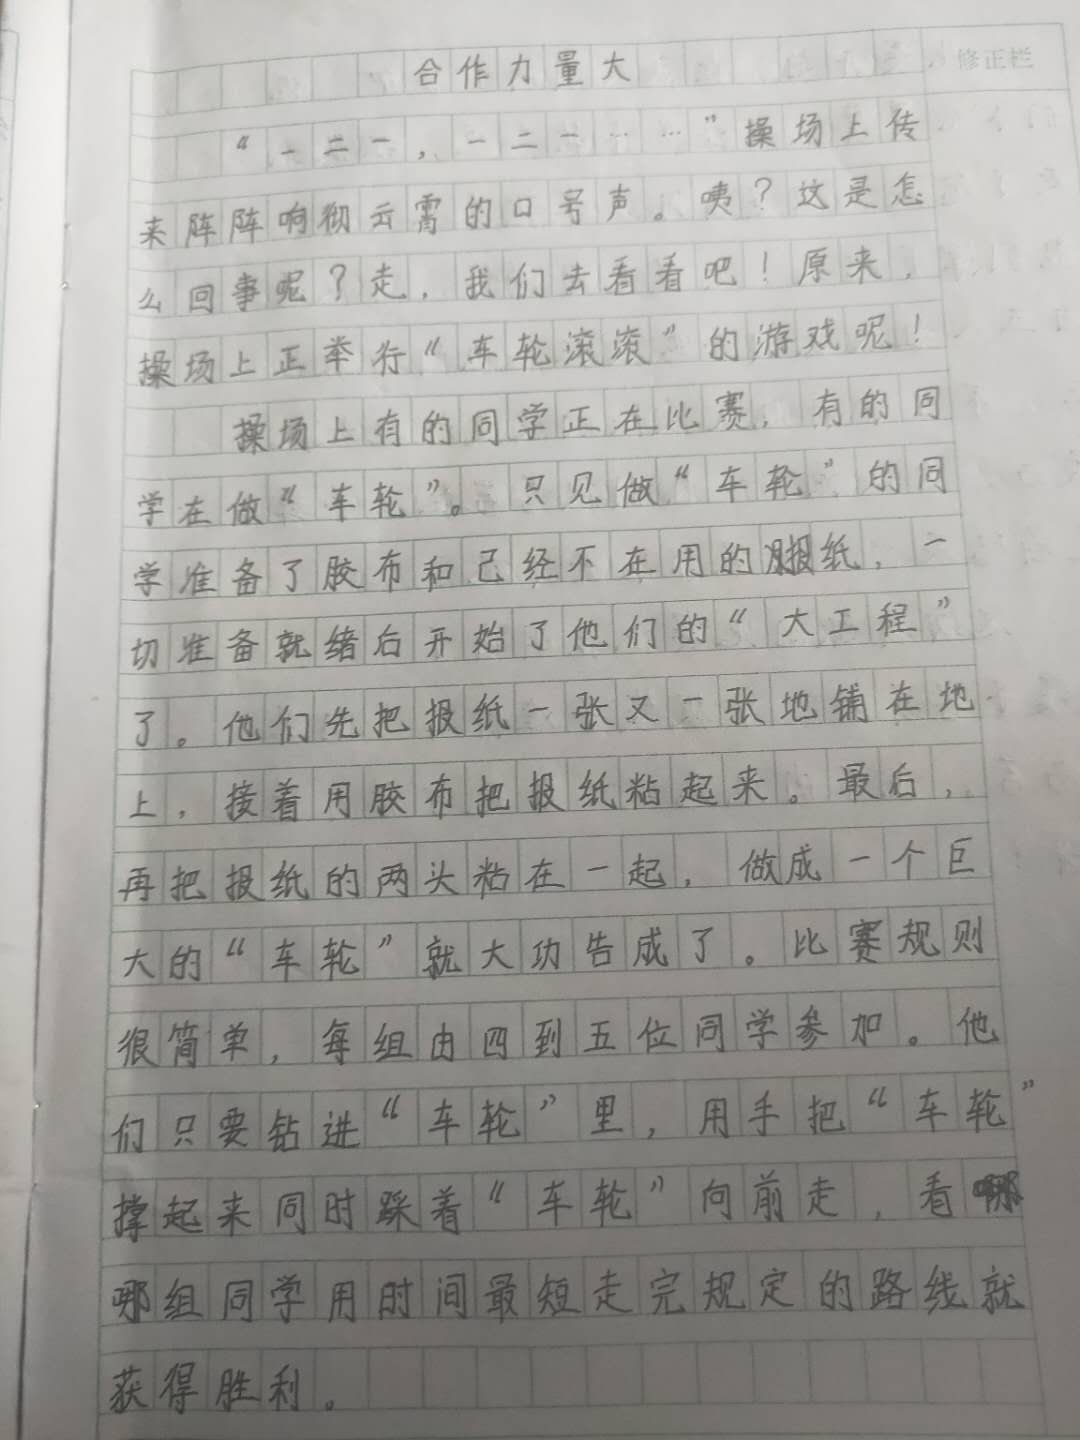 合作力量大
修正栏
“一二一，一二一……”操场上传
来阵阵响彻云霄的口号声。咦？这是怎
么回事呢？走，我们去看看吧！原来，
操场上正举行“车轮滚滚”的游戏呢！
操场上有的同学正在比赛，有的同
学在做“车轮”。只见做“车轮”的同
学准备了胶布和已经不在用的报纸，一
切准备就绪后开始了他们的“大工程”
了。他们先把报纸一张又一张地铺在地
上，接着用胶布把报纸粘起来。最后，
再把报纸的两头粘在一起，做成一个巨
大的“车轮”就大功告成了。比赛规则
很简单，每组由四到五位同学参加。他
们只要钻进“车轮”里，用手把“车轮”
撑起来同时踩着“车轮”向前走，看
哪组同学用时间最短走完规定的路线就
获得胜利。